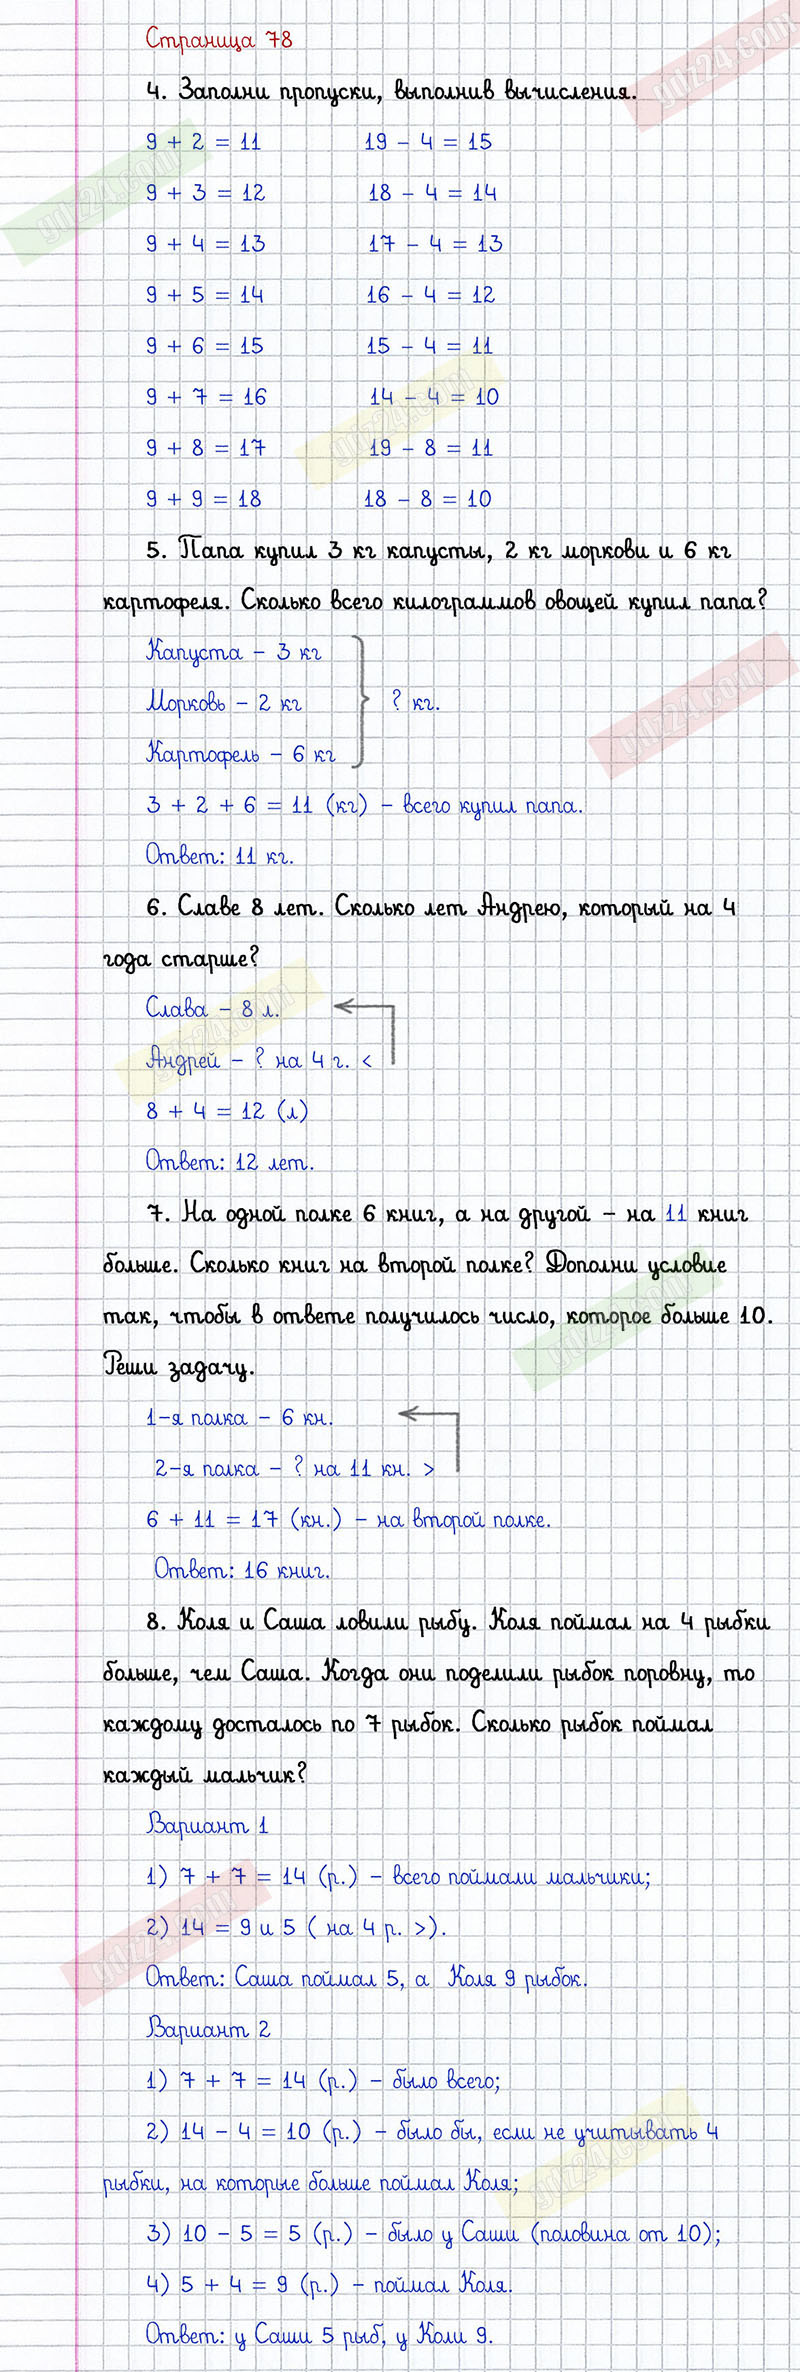 Страница 78
4. Заполни пропуски, выполнив вычисления.
9 + 2 = 11 19 - 4 = 15
9 + 3 = 12 18 - 4 = 14
9 + 4 = 13 17 - 4 = 13
9 + 5 = 14 16 - 4 = 12
9 + 6 = 15 15 - 4 = 11
9 + 7 = 16 14 - 4 = 10
9 + 8 = 17 19 - 8 = 11
9 + 9 = 18 18 - 8 = 10
5. Папа купил 3 кг капусты, 2 кг моркови и 6 кг
картофеля. Сколько всего килограммов овощей купил папа?
Капуста - 3 кг
Морковь - 2 кг ? кг.
Картофель - 6 кг
3 + 2 + 6 = 11 (кг) - всего купил папа.
Ответ: 11 кг.
6. Славе 8 лет. Сколько лет Андрею, который на 4
года старше?
Слава - 8 л.
Андрей - ? на 4 г. <
8 + 4 = 12 (л)
Ответ: 12 лет.
7. На одной полке 6 книг, а на другой - на 11 книг
больше. Сколько книг на второй полке? Дополни условие
так, чтобы в ответе получилось число, которое больше 10.
Реши задачу.
1-я полка - 6 кн.
2-я полка - ? на 11 кн. >
6 + 11 = 17 (кн.) - на второй полке.
Ответ: 16 книг.
8. Коля и Саша ловили рыбу. Коля поймал на 4 рыбки
больше, чем Саша. Когда они поделили рыбок поровну, то
каждому досталось по 7 рыбок. Сколько рыбок поймал
каждый мальчик?
Вариант 1
1) 7 + 7 = 14 (р.) - всего поймали мальчики;
2) 14 = 9 и 5 ( на 4 р. >).
Ответ: Саша поймал 5, а Коля 9 рыбок.
Вариант 2
1) 7 + 7 = 14 (р.) - было всего;
2) 14 - 4 = 10 (р.) - было бы, если не учитывать 4
рыбки, на которые больше поймал Коля;
3) 10 - 5 = 5 (р.) - было у Саши (половина от 10);
4) 5 + 4 = 9 (р.) - поймал Коля.
Ответ: у Саши 5 рыб, у Коли 9.
gdz24.com
gdz24.com
gdz24.com
gdz24.com
gdz24.com
gdz24.com
gdz24.com
gdz24.com